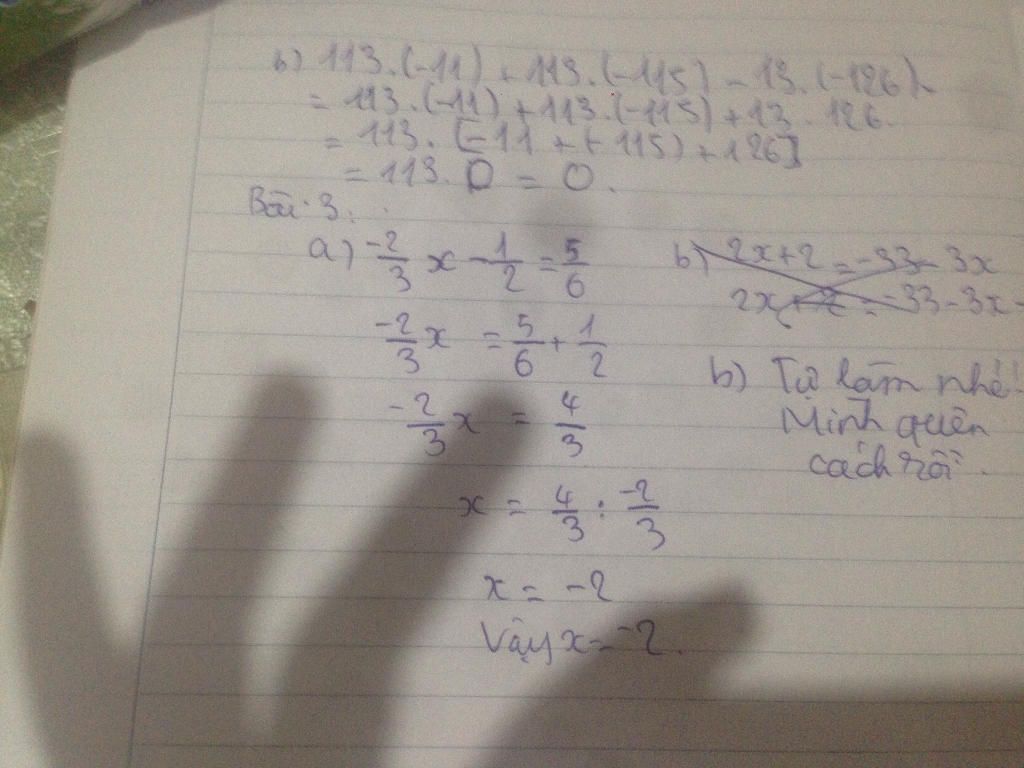 b) 113.(-11) + 113.(-115) - 13.(-126).
= 113.(-11) + 113.(-115) + 13 . 126.
= 113. [-11 + (-115) + 126]
= 113. 0 = 0.
Bài 3:
a) -2/3 x - 1/2 = 5/6
-2/3 x = 5/6 + 1/2
-2/3 x = 4/3
x = 4/3 : -2/3
x = -2
Vậy x = -2.
b) 2x + 2 = -33 - 3x
2x + 2 = -33 - 3x
b) Tự làm nhé!
Mình quên
cách rồi.